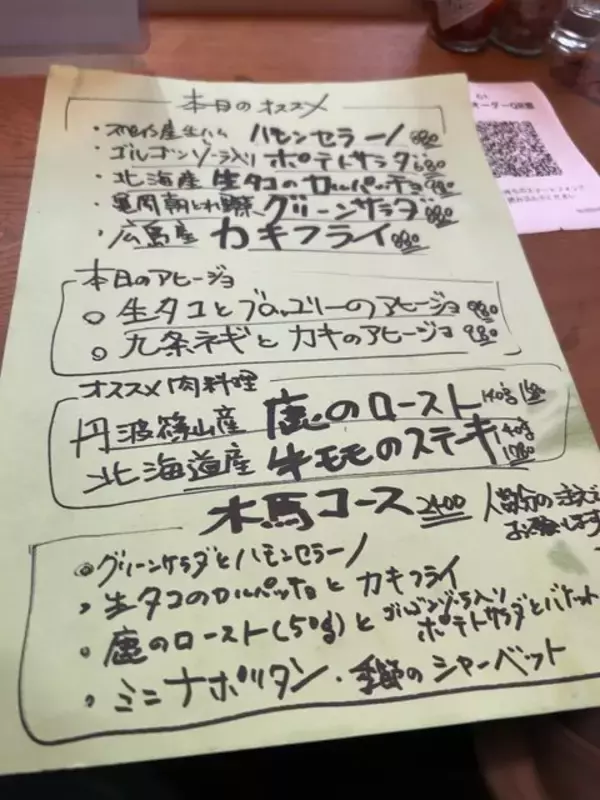 本日のオススメ
・スペイン産生ハム ハモンセラーノ 880
・ゴルゴンゾーラ入り ポテトサラダ 680
・北海産 生タコのカルパッチョ 980
朝とれ グリーンサラダ 880
・広島産 カキフライ 880
本日のアヒージョ
○ 生タコとブロッコリーのアヒージョ 980
○ 九条ネギとカキのアヒージョ 980
オススメ肉料理
丹波篠山産 鹿のロースト 140g
北海道産 牛モモのステーキ 140g
木馬コース 2400 人数分の注文で
お願いします
◎グリーンサラダとハモンセラーノ
・生タコのカルパッチョとカキフライ
・鹿のロースト(50g)とゴルゴンゾーラ入り
ポテトサラダとバケット
・ミニナポリタン・季節のシャーベット
オーダーQR